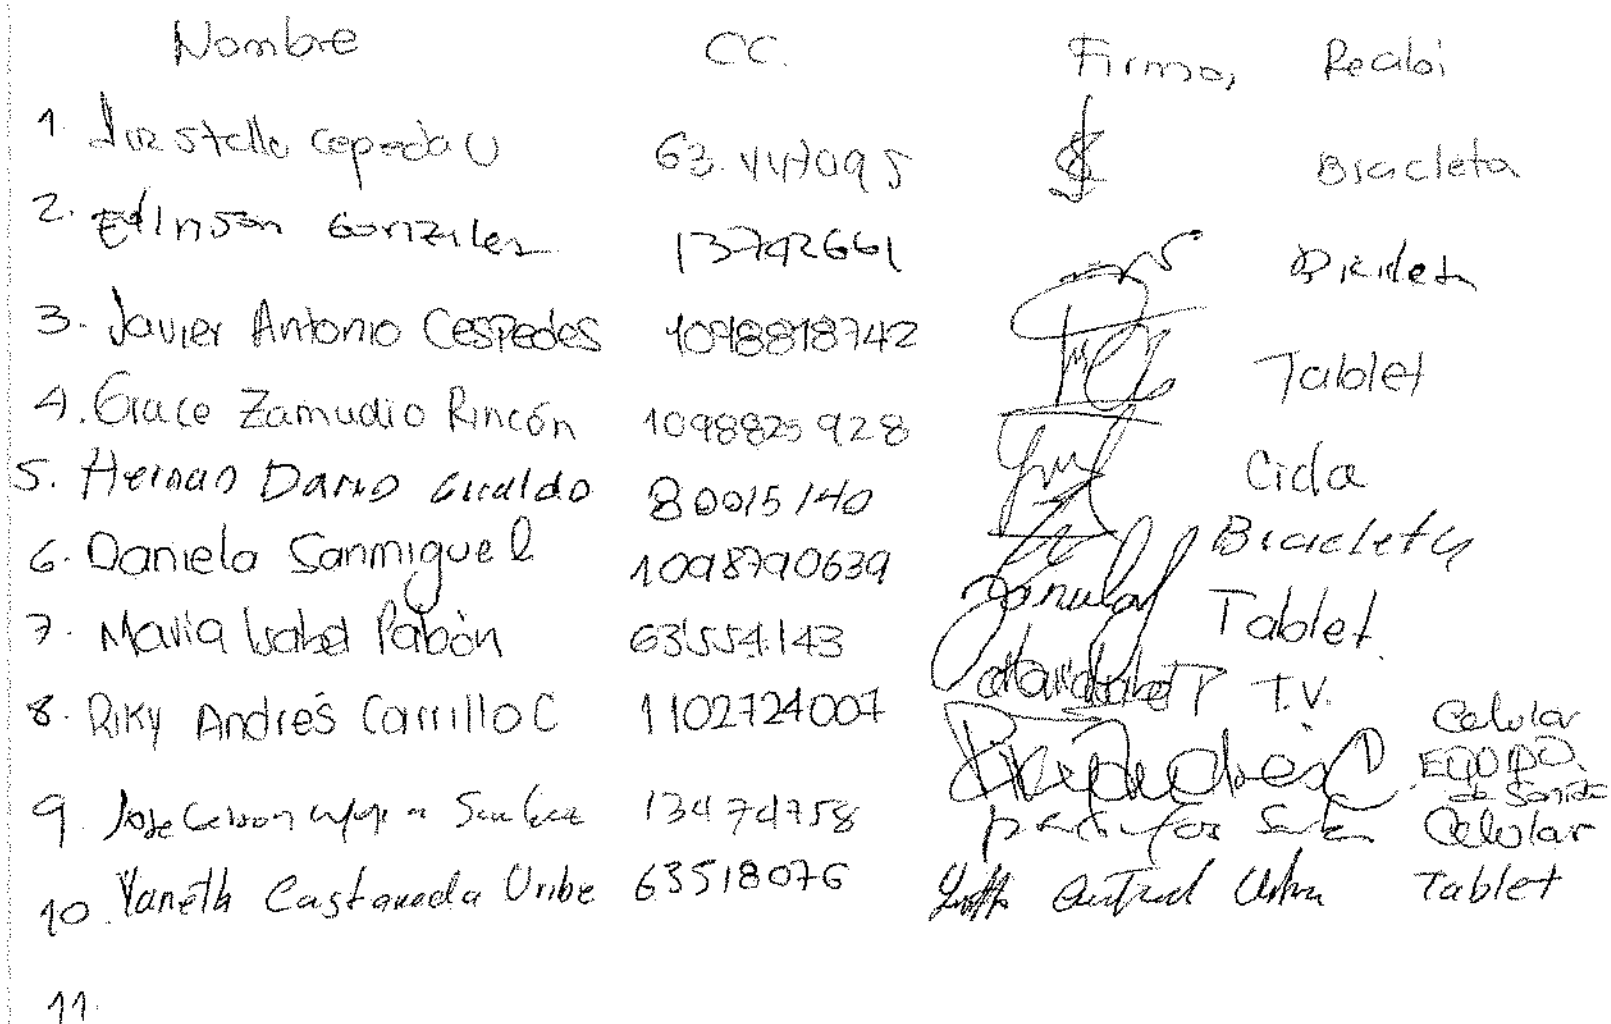 Nombre CC. Firma, Recibi
1. Luz Stella Cepeda U 63.447095 Bicicleta
2. Edinson Gonzalez 13742661 Bicicleta
3. Javier Antonio Cespedes 1098818742 Tablet
4. Grace Zamudio Rincón 1098825928 Cicla
5. Hernan Dario Giraldo 80015140 Bicicleta
6. Daniela Sanmiguel 1098790639 Tablet
7. Maria Isabel Pabón 63'554.143 T.V.
8. Riky Andrés Carrillo C 1102724007 Celular
EQUIPO
de Sonido
9. Jose 13474758 Celular
10. Yaneth Castaneda Uribe 63518076 Tablet
11.